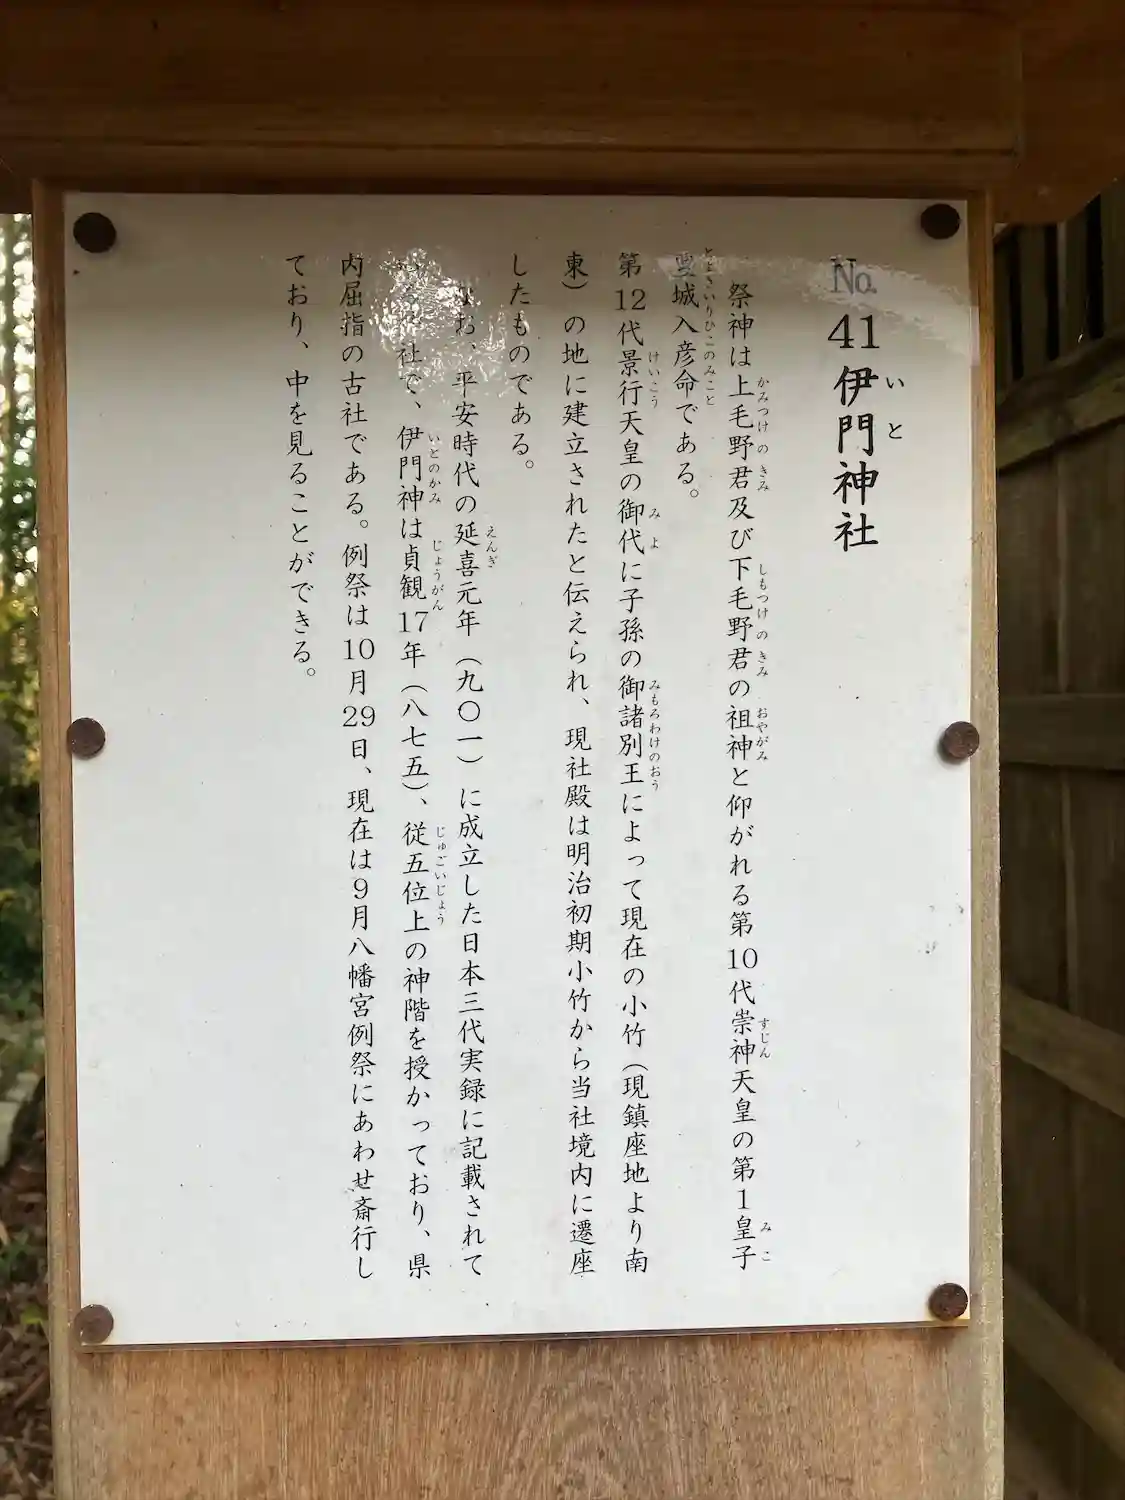 No.41伊門神社
祭神は上毛野君及び下毛野君の祖神と仰がれる第10代崇神天皇の第1皇子
豊城入彦命である。
第12代景行天皇の御代に子孫の御諸別王によって現在の小竹（現鎮座地より南
東）の地に建立されたと伝えられ、現社殿は明治初期小竹から当社境内に遷座
したものである。
なお、平安時代の延喜元年（九〇一）に成立した日本三代実録に記載されて
社で、伊門神は貞観17年（八七五）、従五位上の神階を授かっており、県
内屈指の古社である。例祭は10月29日、現在は9月八幡宮例祭にあわせ斎行し
ており、中を見ることができる。